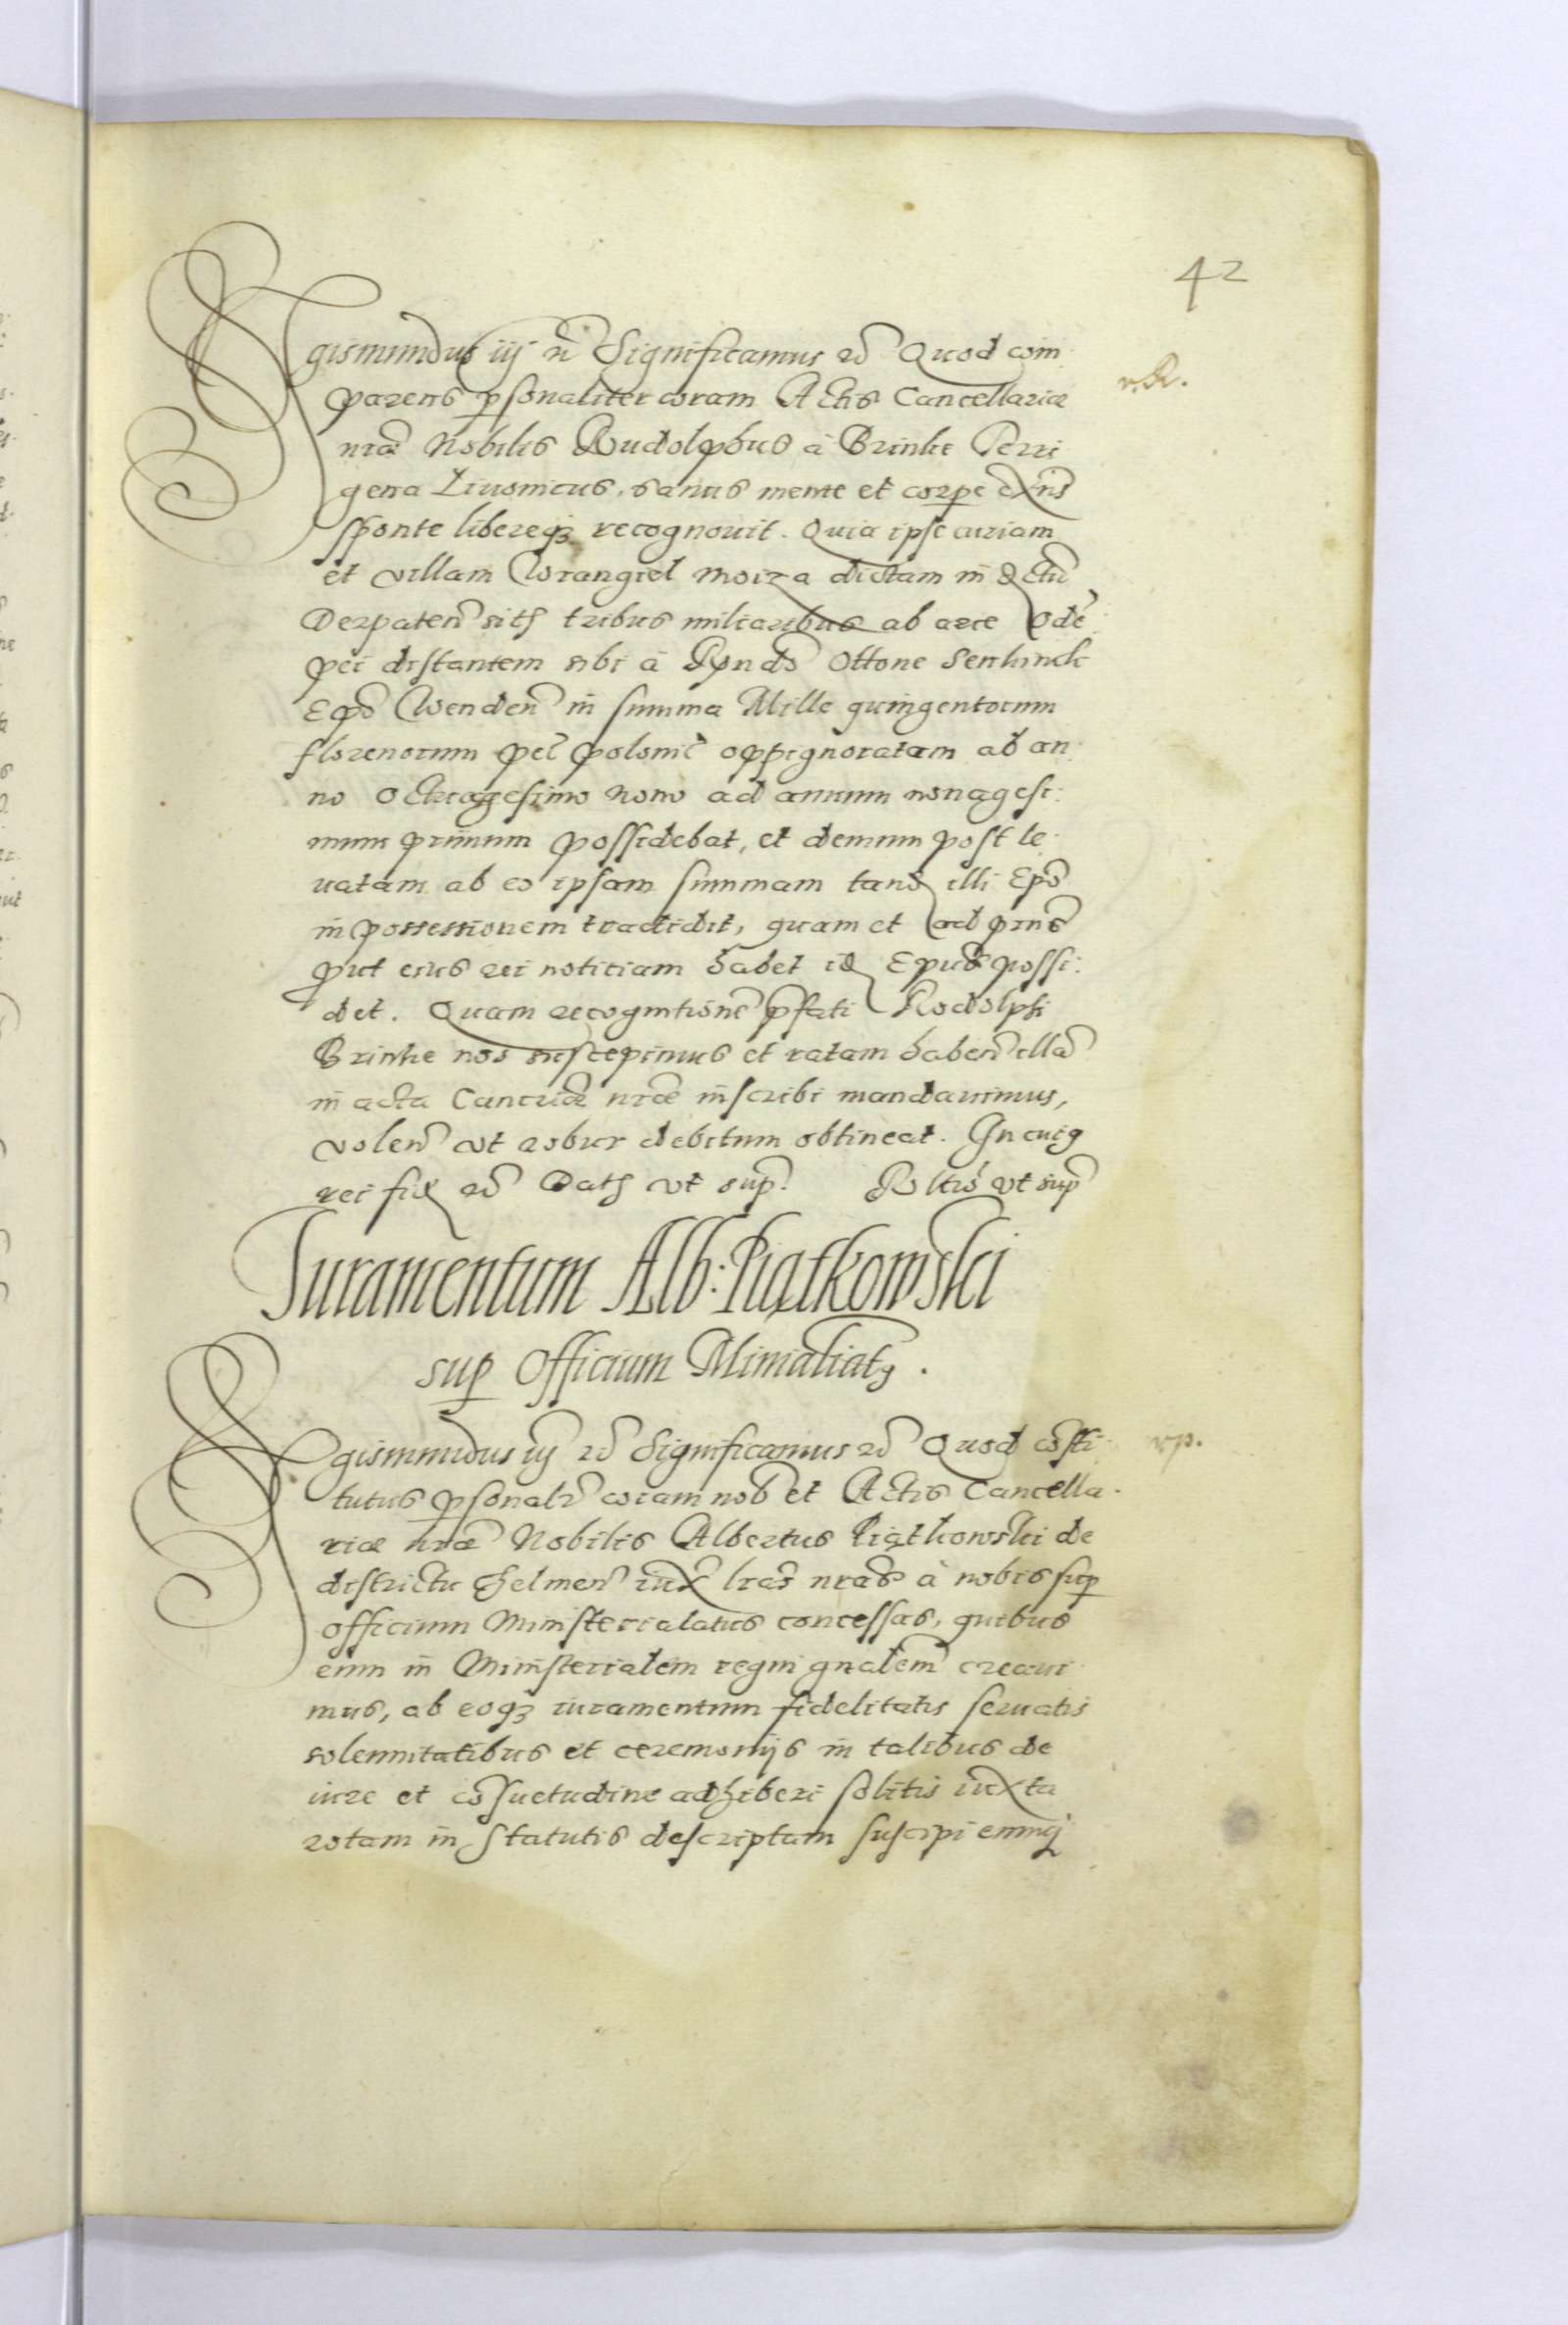 42
Sigismundus iij etc Significamus etc Quod com
parens psonaliter coram Actis Cancellariæ
nræ Nobilis Rudolphus à Brinke Terri
gena Liuonicus, sanus mente et corpe exñs
sponte libereqȝ recognouit. Quia ipse curiam
et villam Wrangiel moiza dictam in dctu
Derpaten̄ sitā tribus miliaribus ab arce Ode
pei distantem sibi à Rndo Ottone Senkinck
Epo Wenden̄ in summa Mille quingentorum
florenorum pel polonic̄ oppignoratam ab an
no Octuagesimo nono ad annum nonagesi:
mum primum possidebat, et demum post le
uatam ab eo ipsam summam tand illi Epo
in possessionem tradidit, quam et ad prns
put eius rei notitiam habet id Epus possi:
det. Quam recognitionē pfati Rodolphi
Brinke nos suscepimus et ratam haben̄ illā
in acta Canc̄riæ nræ inscribi mandauimus,
volen̄ vt robur debitum obtineat. In cuiꝯ
rei fid etc Datȝ vt sup. Rltio vt sup
r.R.
Juramentum Alb: Piątkowski
sup Officium Minialiatꝯ.
Sigismundus iij etc Significamus etc Quod cōsti
tutus psonalr̄ coram nob et Actis Cancella
riæ nræ Nobilis Albertus Piątkowski de
districtu Chelmen̄ iux lras nras à nobis sup
officium Ministerialatus concessas, quibus
eum in Ministerialem regni gnalem creaui
mus, ab eoqȝ iuramentum fidelitatis seruatis
solennitatibus et ceremonijs in talibus de
iure et cōsuetudine adhiberi solitis iuxta
rotam in statutis descriptam suscipi eumqȝ
rp.